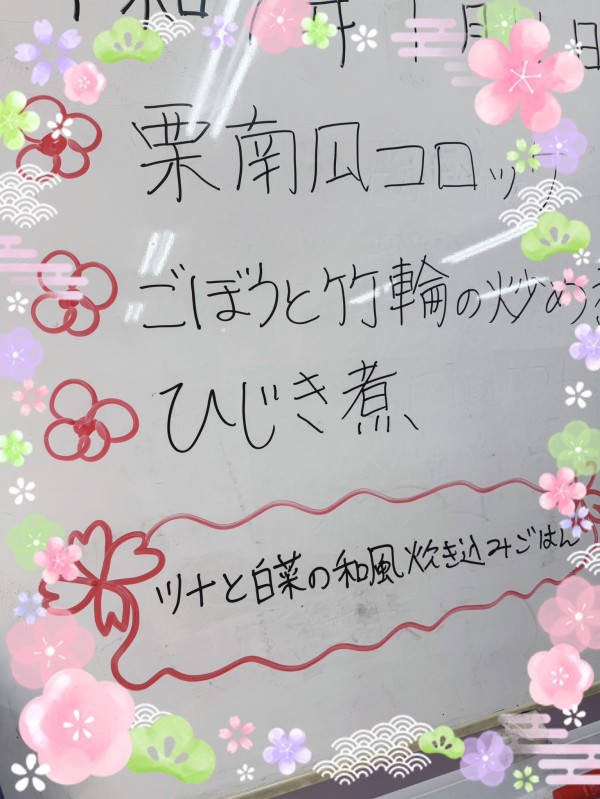 令和7年1月 日
栗南瓜コロッケ
ごぼうと竹輪の炒め煮
ひじき煮
ツナと白菜の和風炊き込みごはん